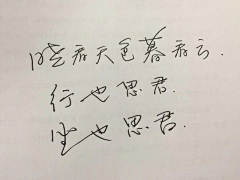 晓看天色暮看云.
行也思君.
坐也思君.